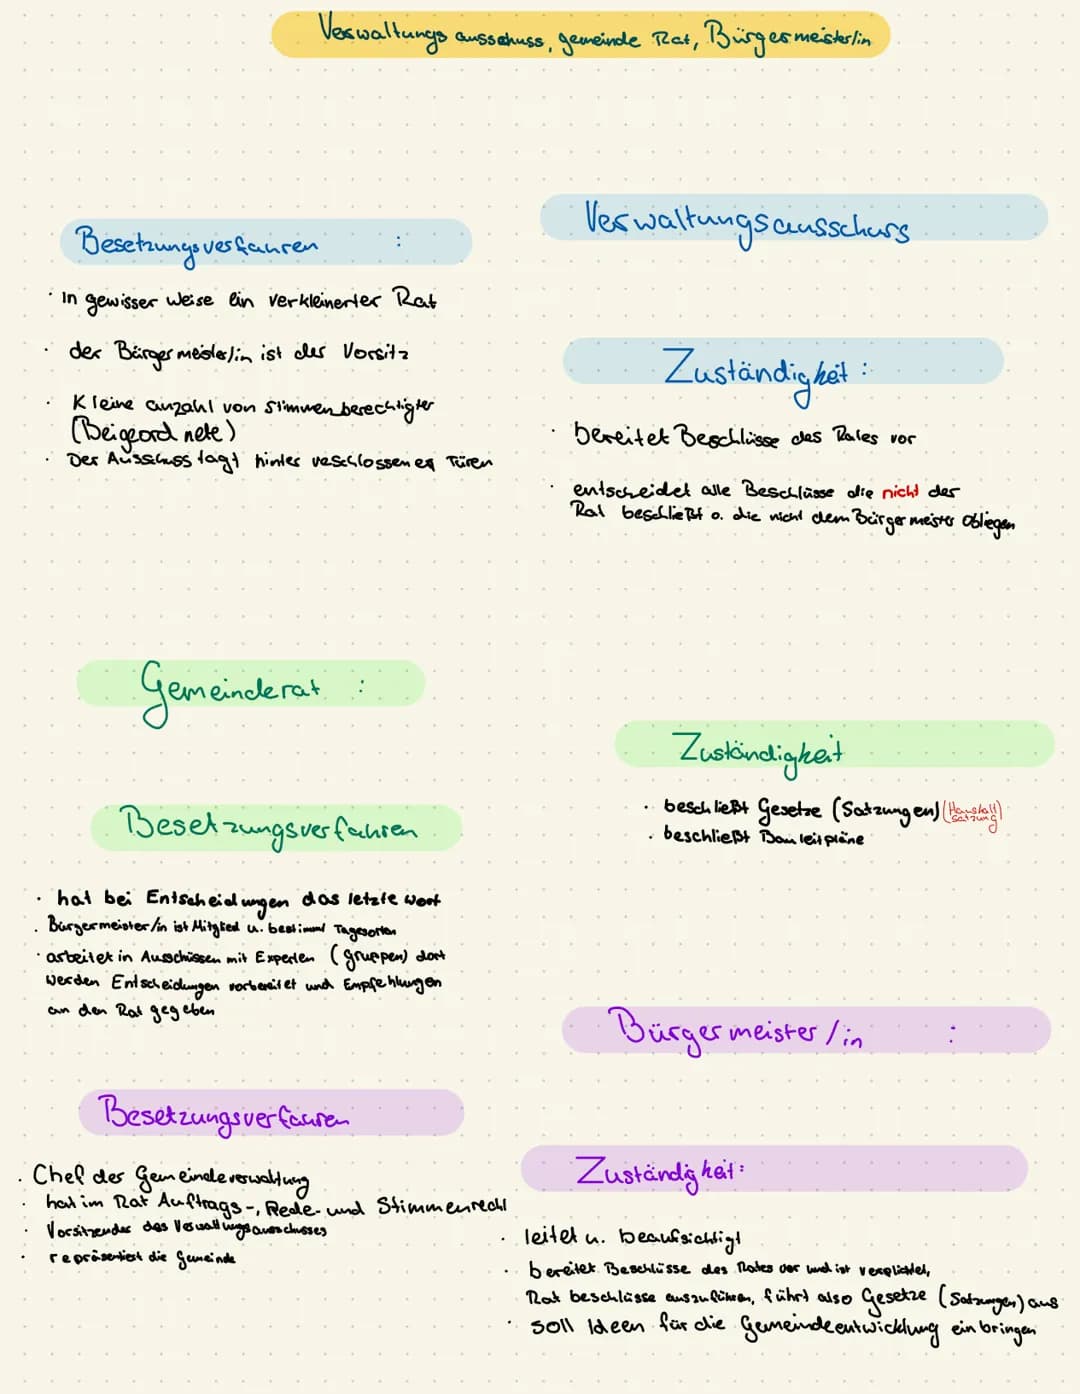 Verwaltungsausschuss, gemeinde Rat, Bürgermeister/in
Verwaltungsausschuss
Besetzungsverfahren :
· In gewisser Weise ein verkleinerter Rat
· der Bürgermeister/in ist der Vorsitz
· Kleine anzahl von Stimmenberechtigter
(Beigeordnete)
· Der Ausschuss tagt hinter verschlossenen Türen
Zuständigkeit :
· bereitet Beschlüsse des Rates vor
· entscheidet alle Beschlüsse die nicht der
Rat beschließt o. die nicht dem Bürgermeister obliegen
Gemeinderat :
Besetzungsverfahren
· hat bei Entscheidungen das letzte Wort
· Bürgermeister/in ist Mitglied u. bestimmt
· arbeitet in Ausschüssen mit Experten (gruppen) dort
werden Entscheidungen vorbereitet und Empfehlungen
an den Rat gegeben
Zuständigkeit
· beschließt Gesetze (Satzungen) (Haushalt
satzung)
· beschließt Bauleitpläne
Bürgermeister/in :
Besetzungsverfahren
· Chef der Gemeindeverwaltung
· hat im Rat Auftrags-, Rede- und Stimmenrecht
· Vorsitzender des Verwaltungsausschusses
· repräsentiert die Gemeinde
Zuständigkeit:
· leitet u. beaufsichtigt
· bereitet Beschlüsse des Rates vor und ist verplichtet,
Rat beschlüsse auszuführen, führt also Gesetze (Satzungen) aus
· soll Ideen für die Gemeindeentwicklung einbringen